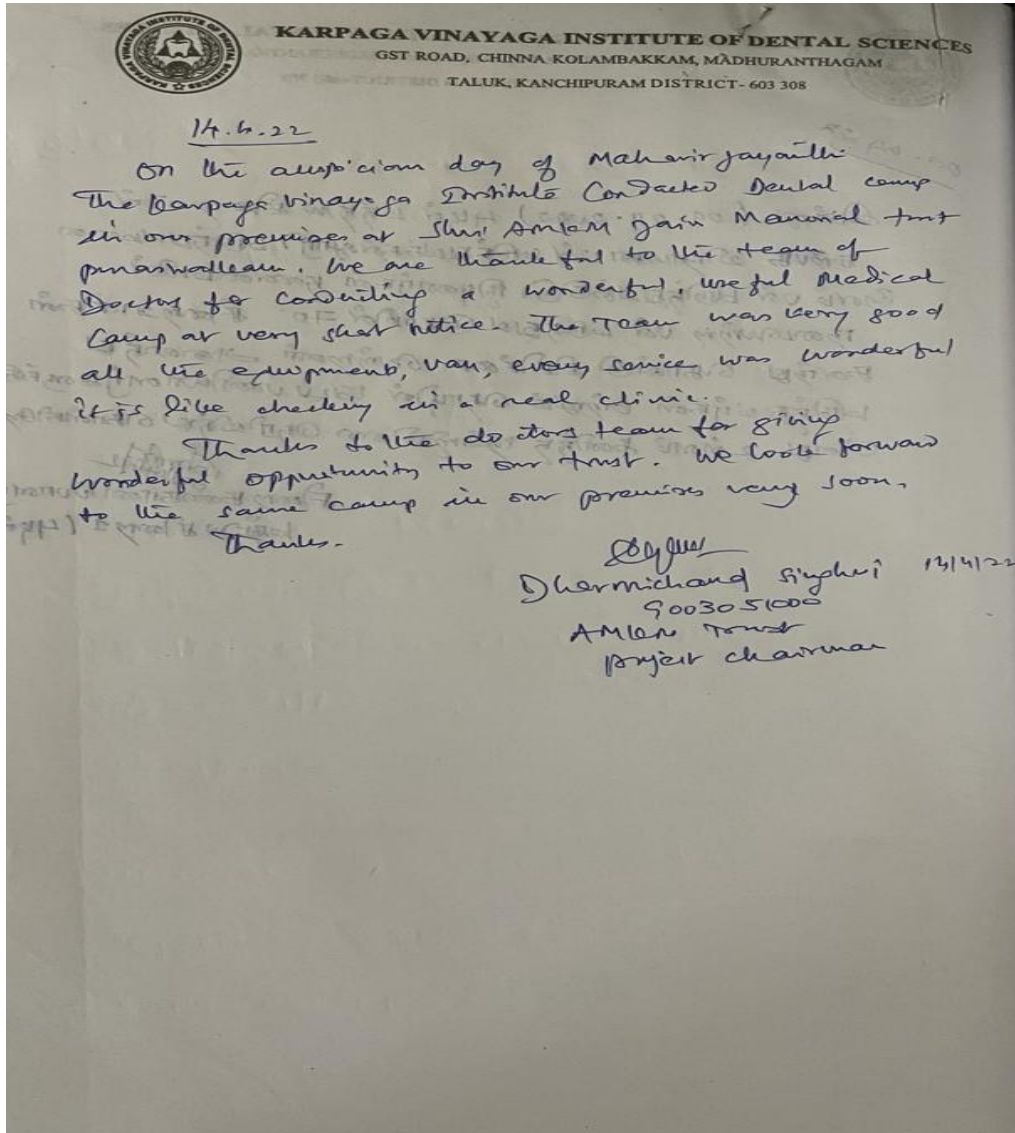 KARPAGA VINAYAGA INSTITUTE OF DENTAL SCIENCES
GST ROAD, CHINNA KOLAMBAKKAM, MADHURANTHAGAM
TALUK, KANCHIPURAM DISTRICT- 603 308
14.4.22
On the auspicious day of Mahavir Jayanthi
The Karpaga Vinayaga Institute Conducted Dental camp
in our premises at Shri AMKM Jain Memorial trust
puraswalkam. We are thankful to the team of
Doctors for conducting a wonderful, useful Medical
Camp at very short notice. The Team was very good
all the equipments, van, every service was wonderful
it is like checking in a real clinic.
Thanks to the doctors team for giving
wonderful oppurtunity to our trust. We look forward
to the same camp in our premises very soon.
Thanks.
Dharmichand Singhvi 14/4/22
9003051000
AMKM Trust
project chairman